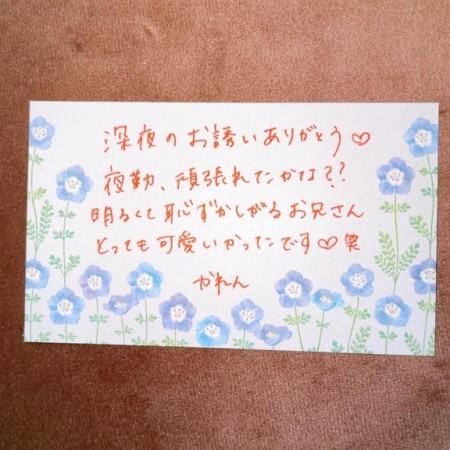 深夜のお誘いありがとう♡
夜勤、頑張れたかな??
明るくて恥ずかしがるお兄さん
とっても可愛いかったです♡笑
かれん